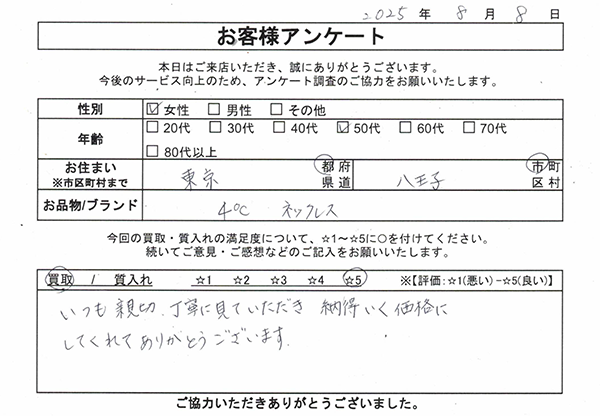 2025 年 8 月 8 日
お客様アンケート
本日はご来店いただき、誠にありがとうございます。
今後のサービス向上のため、アンケート調査のご協力をお願いいたします。
性別 ☑女性 □男性 □その他
年齢 □20代 □30代 □40代 ☑50代 □60代 □70代
□80代以上
お住まい ※市区町村まで 東京 都府県道 八王子 市町区村
お品物/ブランド 4℃ ネックレス
今回の買取・質入れの満足度について、☆1～☆5に○を付けてください。
続いてご意見・ご感想などのご記入をお願いいたします。
買取 / 質入れ ☆1 ☆2 ☆3 ☆4 ☆5 ※【評価：☆1(悪い)－☆5(良い)】
いつも親切、丁寧に見ていただき 納得いく価格に
してくれてありがとうございます。
ご協力いただきありがとうございました。